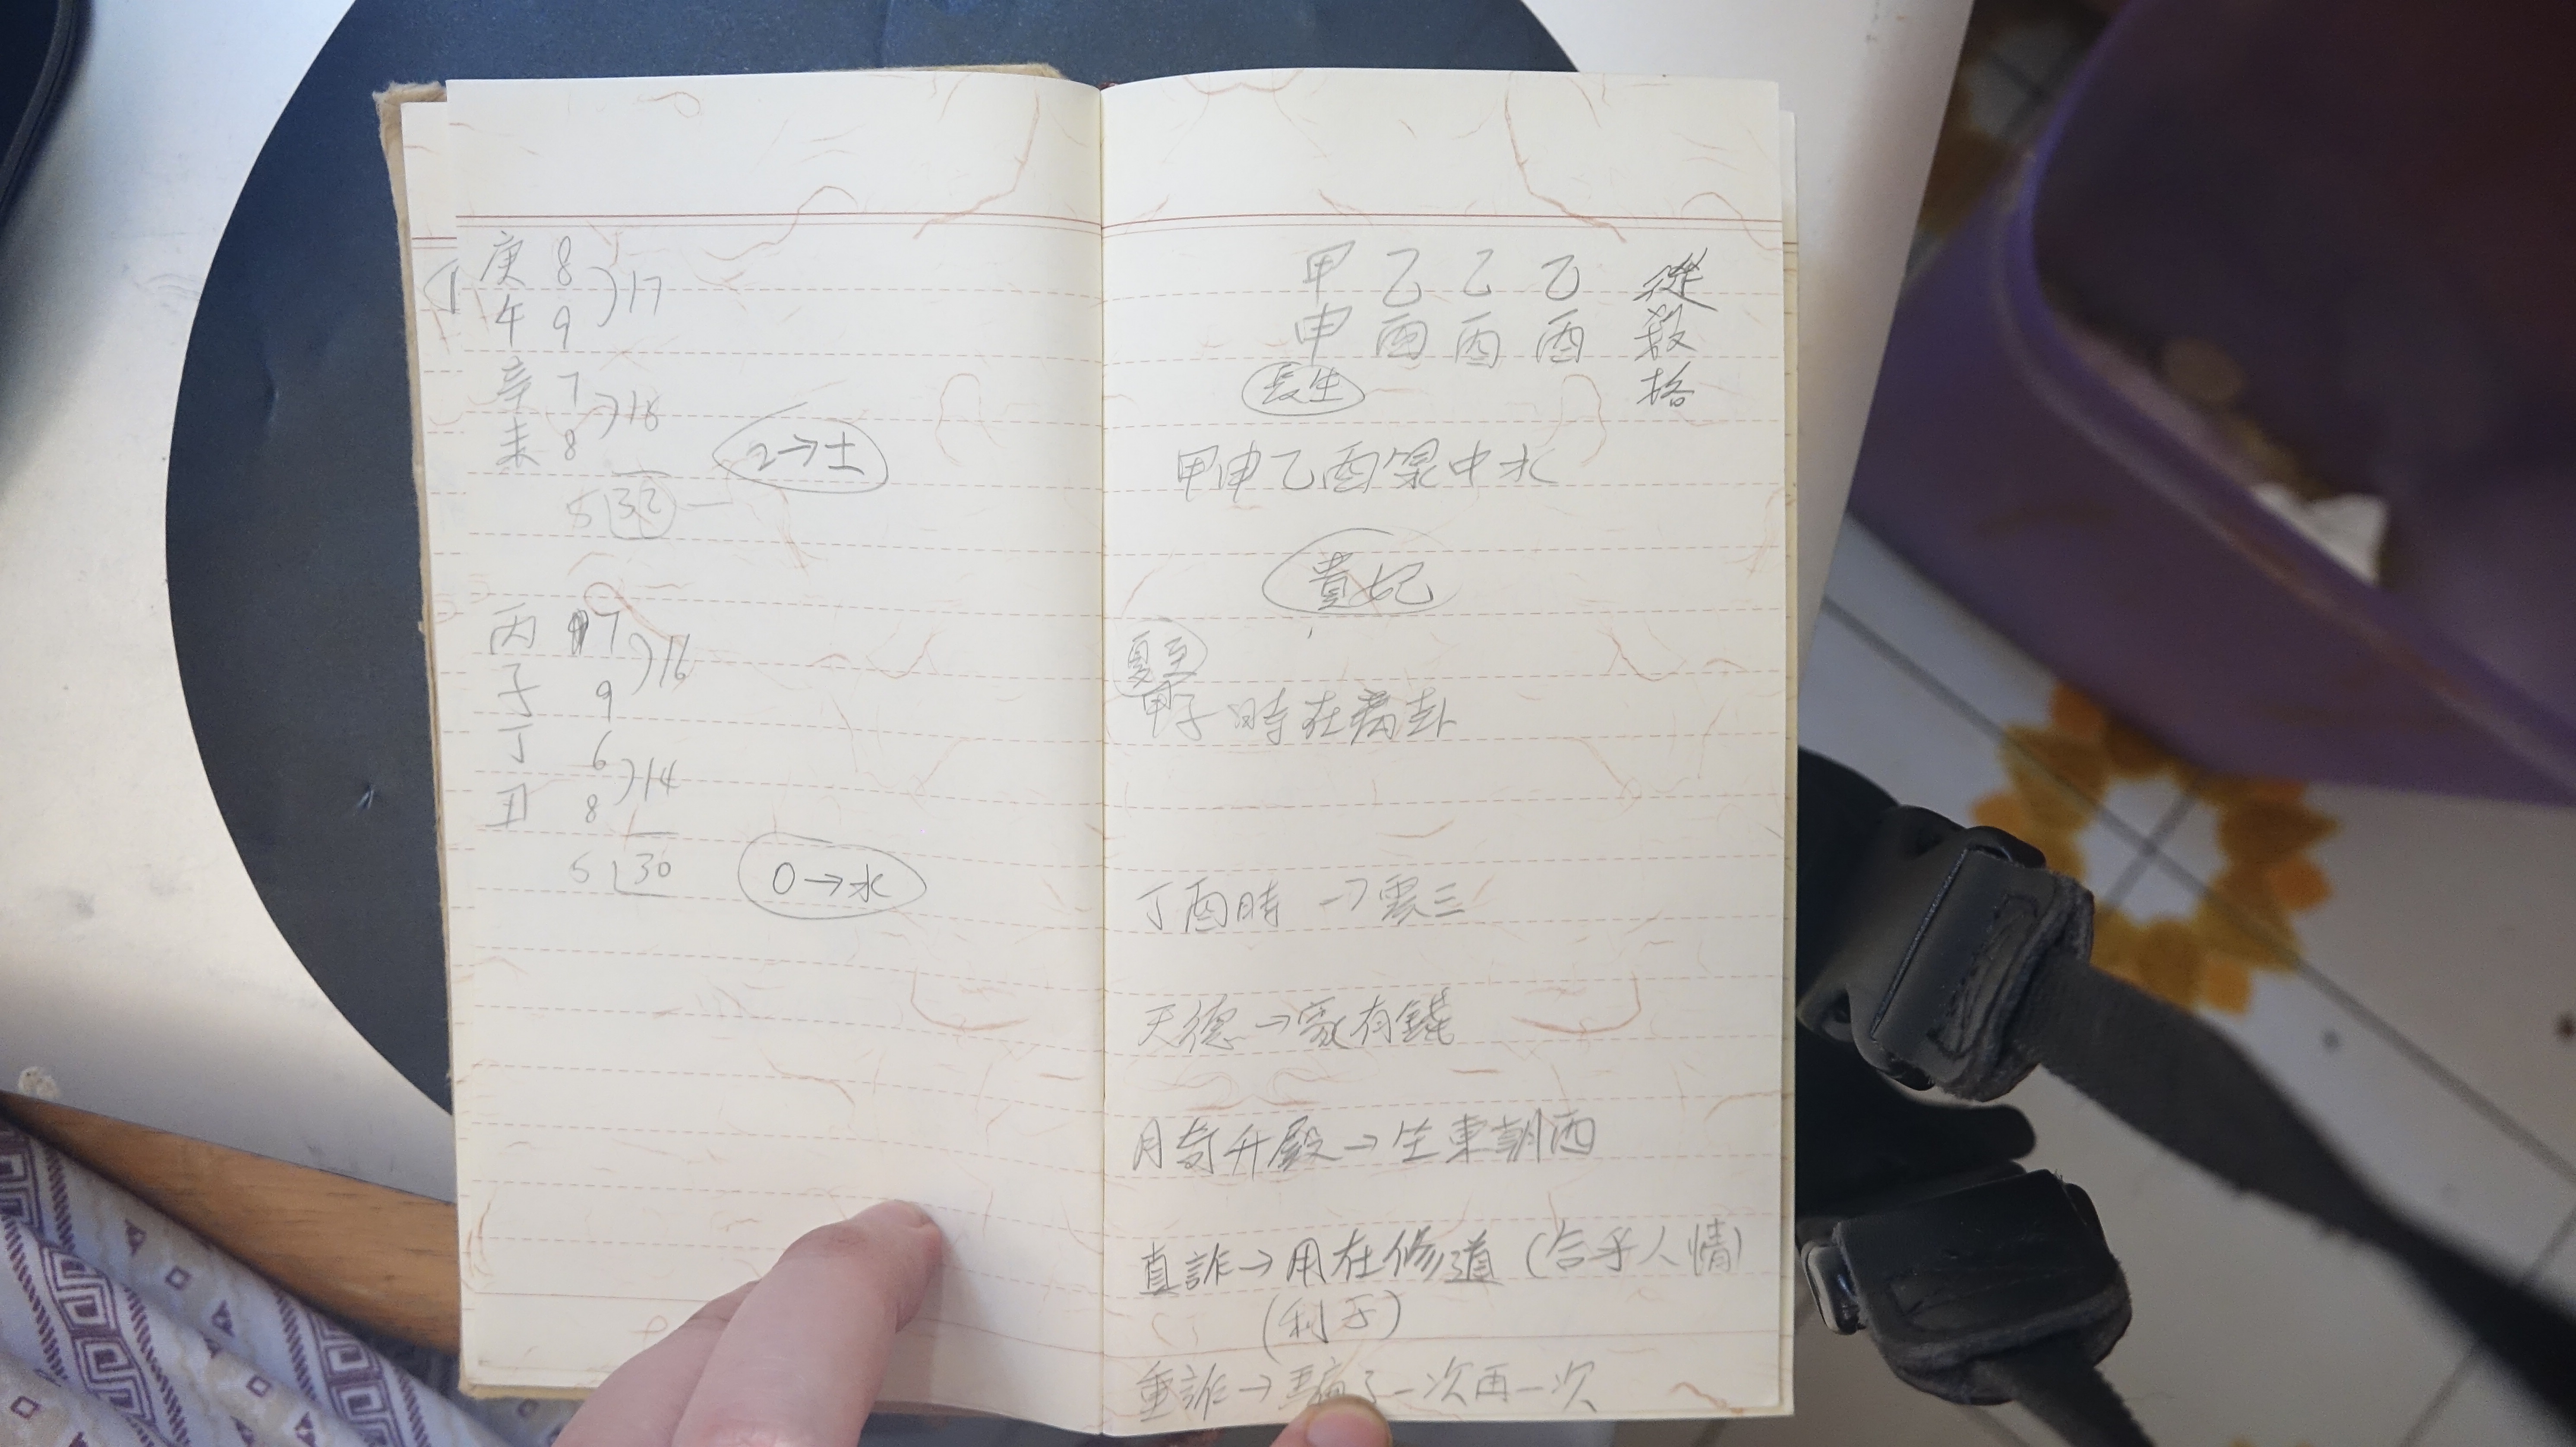 庚 8
午 9 )17
辛 7
未 8 )15
5 32
2→土
丙 7
子 9 )16
丁 6
丑 8 )14
5 30
0→水
甲 乙 乙 乙
申 酉 酉 酉
從殺格
長生
甲申乙酉泉中水
貴妃
甲子時在
丁酉時→震三
天德→家有錢
月奇升殿→坐東朝西
真詐→用在修道(合乎人情)
(利于)
重詐→騙了一次再一次